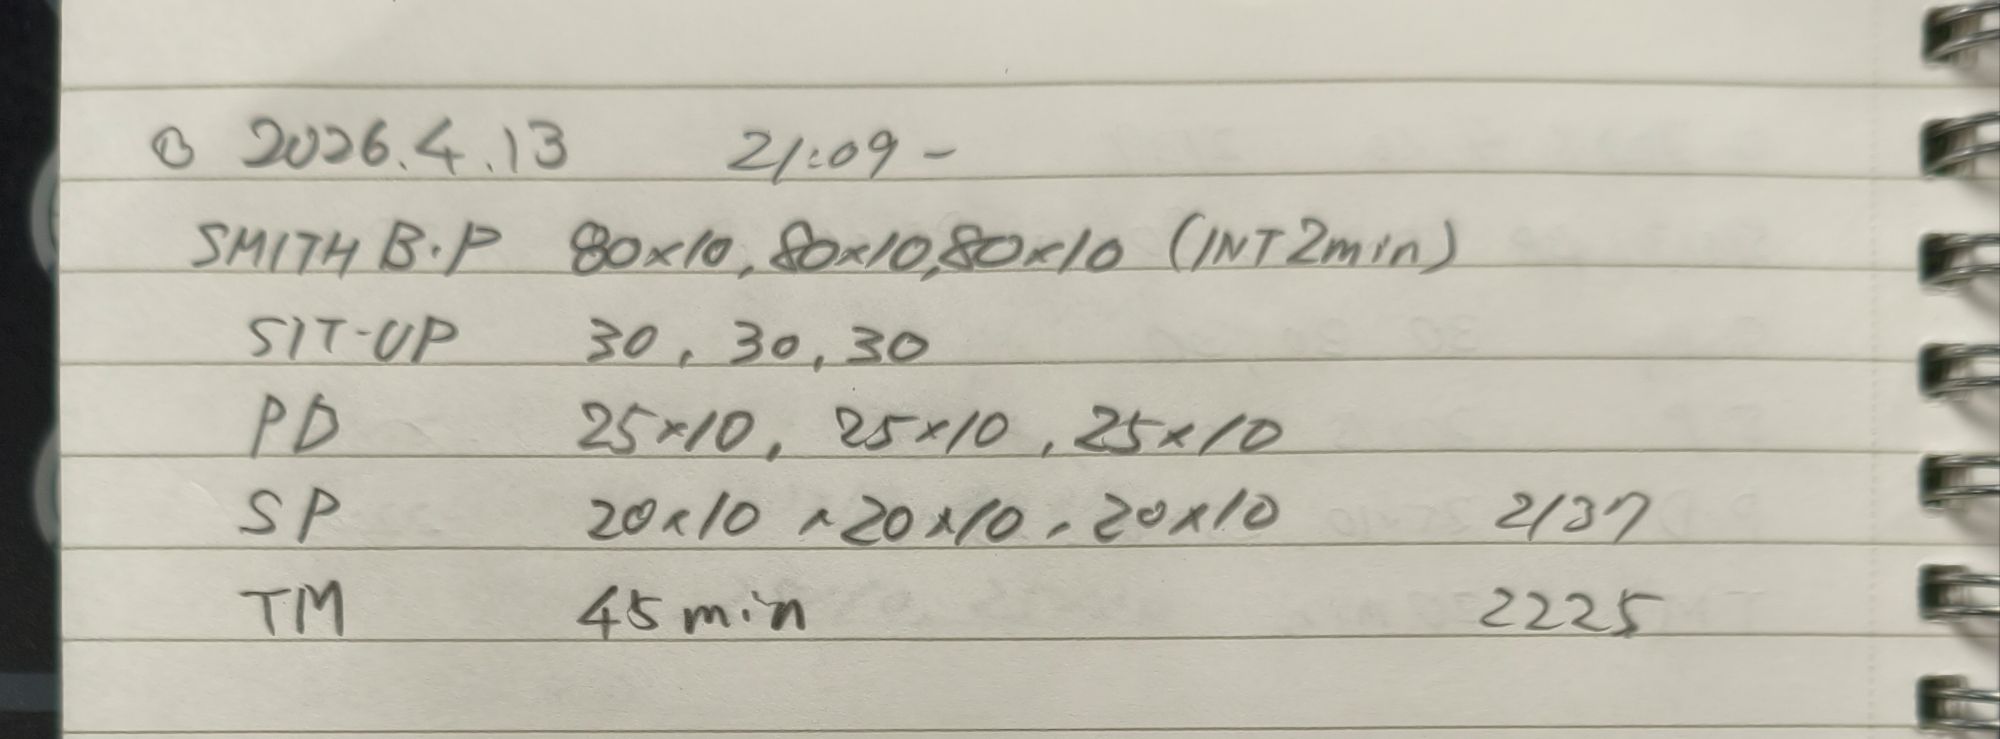 2026.4.13 21:09-
SMITH B.P 80x10, 80x10, 80x10 (INT 2min)
SIT-UP 30, 30, 30
PD 25x10, 25x10, 25x10
SP 20x10, 20x10, 20x10 2137
TM 45 min 2225